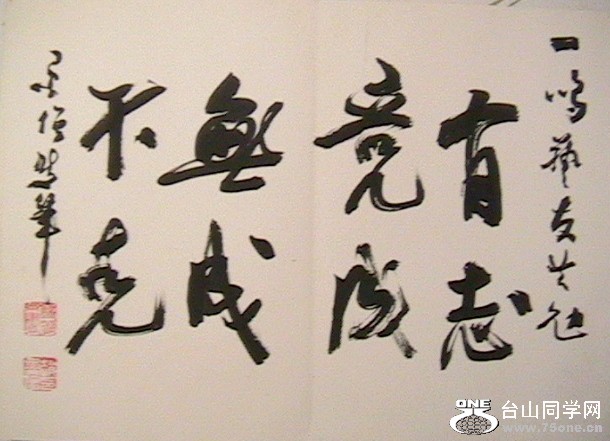 一鳴藝友共勉
有志
竟成
無成
不克
ONE
台山同学网
www.75one.cn